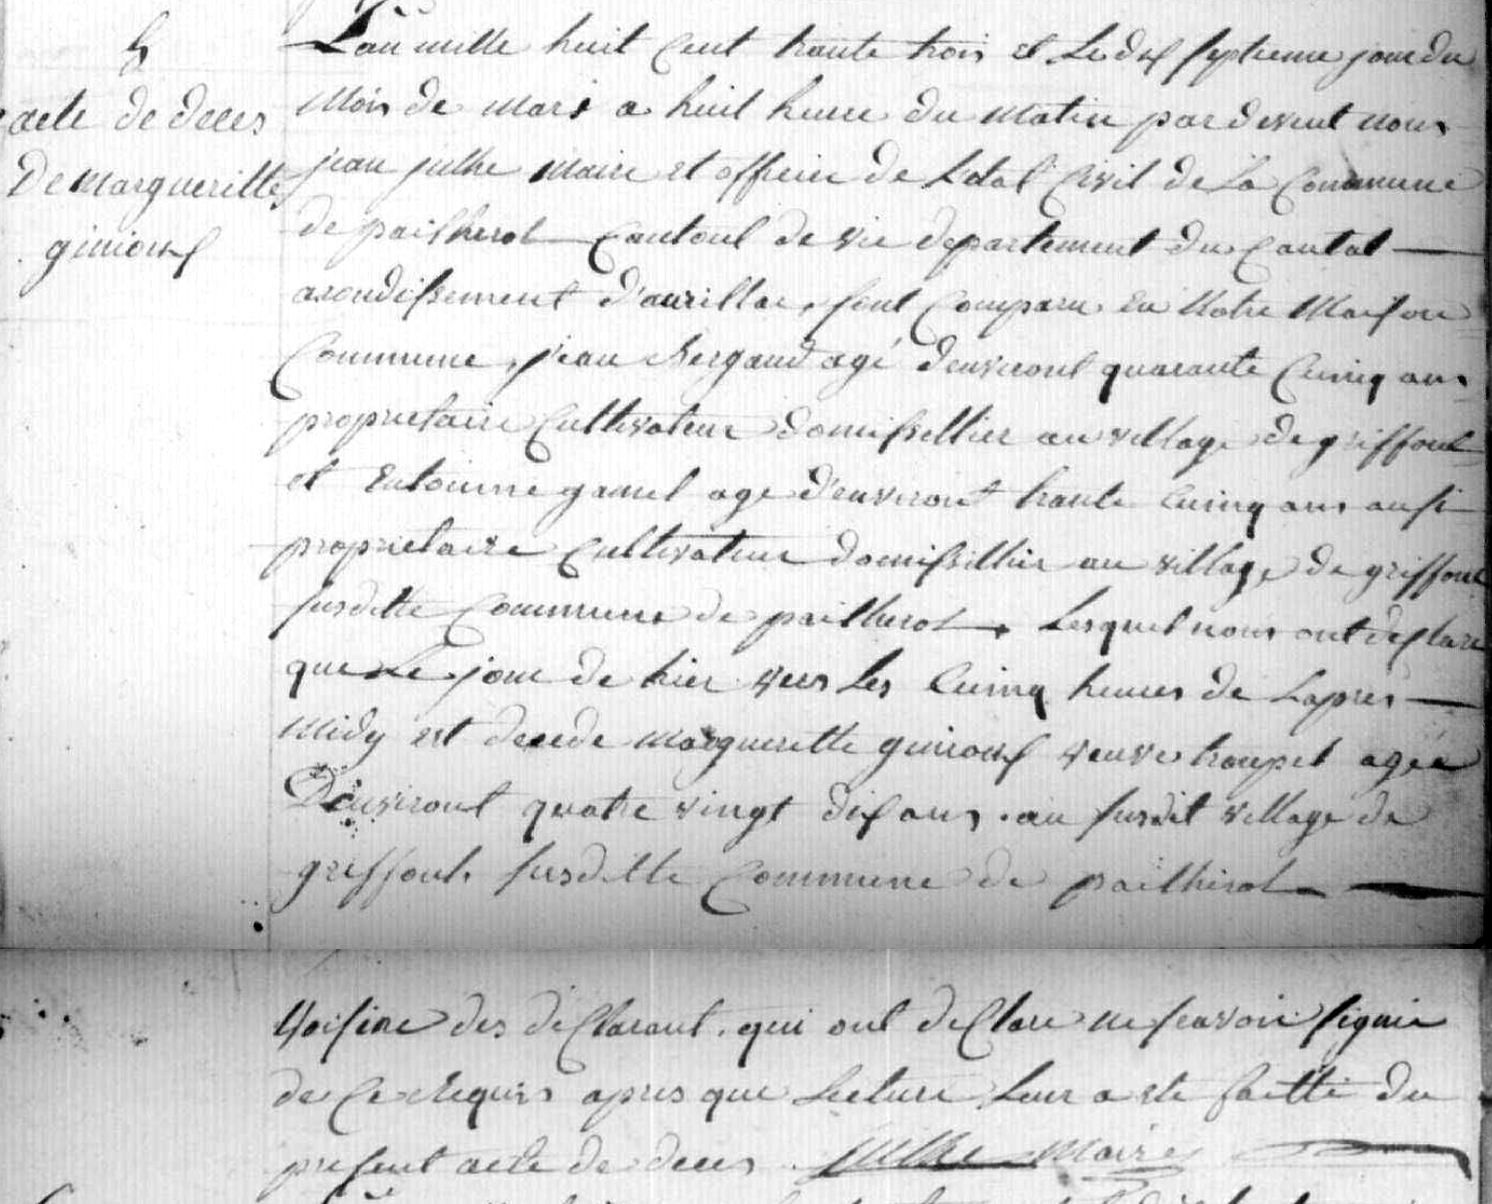 5
acte de deces
de margueritte
ginioux
L'an mille huit cent trante trois et Le dix septieme jour du
Mois de Mars a huit heure du Matin par devent nous
jean julhe Maire et officier de Letat Civil de La Commune
de pailherol Cantont de vic departement du Cantal
arondissement d'aurillac, sont Comparu En Notre Maison
Commune, jean Bergaud agé d'environt quarante Cuinq ans
proprietaire Cultivateur domissellier au village de griffoul
et Entoinne gamel age d'environt trante Cuinq ans ausi
proprietaire Cultivateur domissillier au village de griffoul
susditte Commune de pailherol. Lesquel nous ont desclare
que Le jour de hier vers Les Cuinq heures de Lapres
Midy est decede marguerette ginioux veuve troupel agée
D'environt quatre vingt dix ans. au susdit village de
griffoul. susditte Commune de pailherol
Voisine des desClarant. qui ont desClare ne scavoir signier
de Ce Requis apres que Lecture Leur a ete faitte du
present acte de deces. Julhe Maire